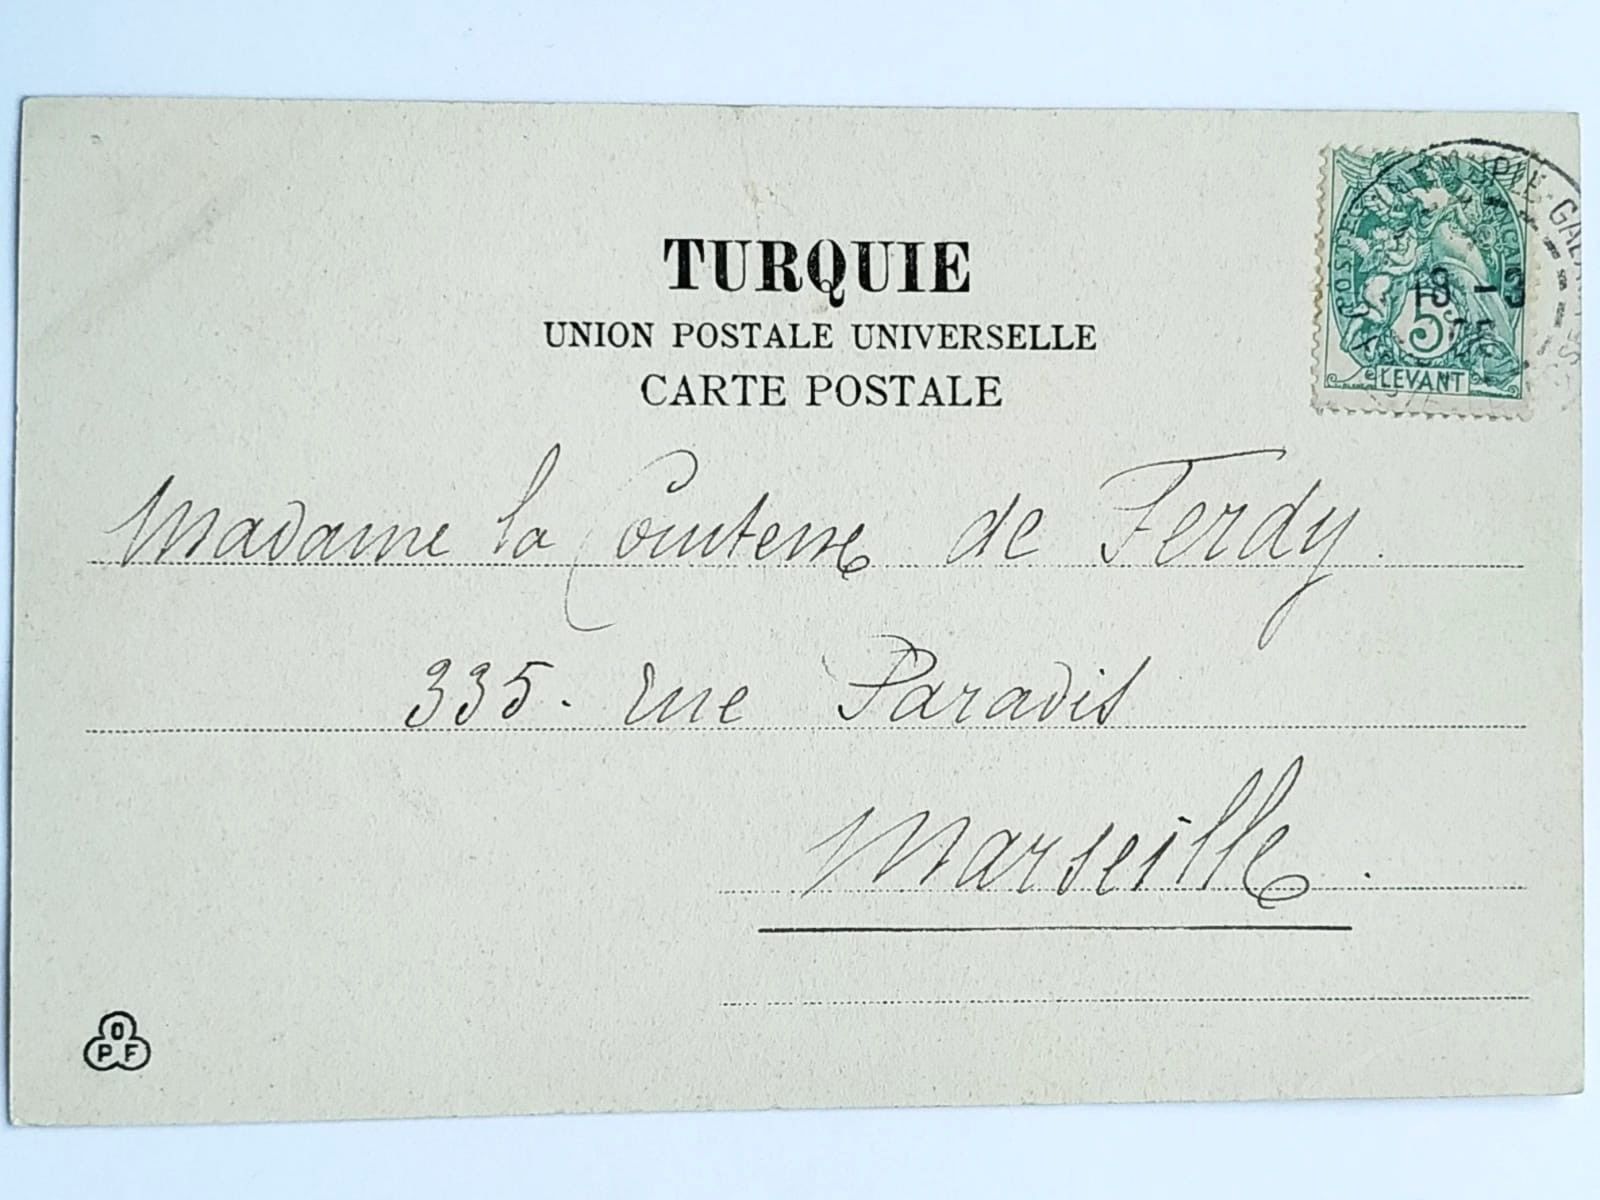 TURQUIE
UNION POSTALE UNIVERSELLE
CARTE POSTALE
POSTES FRANÇAISES
5
LEVANT
18 -3
Madame la Comtesse de Ferdy.
335. rue Paradis
Marseille.
O
P F